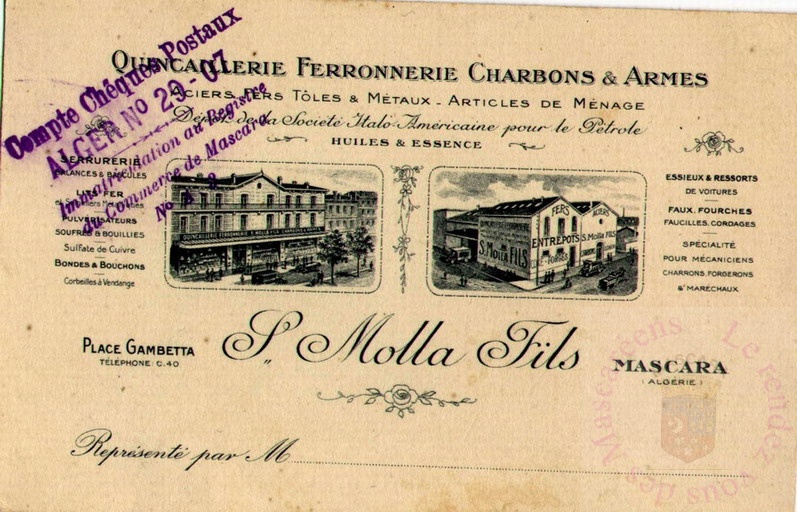 Compte Chéques Postaux
ALGER No 29-07
Immatriculation au Registre
du Commerce de Mascara
QUINCAILLERIE FERRONNERIE CHARBONS & ARMES
ACIERS, FERS TÔLES & MÉTAUX - ARTICLES DE MÉNAGE
Dépôt de la Société Italo-Américaine pour le Pétrole
HUILES & ESSENCE
SERRURERIE
BALANCES & BASCULES
LITS FER
PULVÉRISATEURS
SOUFRES & BOUILLIES
Sulfate de Cuivre
BONDES & BOUCHONS
Corbeilles à Vendange
QUINCAILLERIE FERRONNERIE S. MOLLA FILS CHARBONS & ARMES
FERS
ACIERS
ENTREPÔTS S. Molla FILS
S. MOLLA FILS
FORGES
ESSIEUX & RESSORTS
DE VOITURES
FAUX. FOURCHES
FAUCILLES. CORDAGES
SPÉCIALITÉ
POUR MÉCANICIENS
CHARRONS. FORGERONS
& MARÉCHAUX
PLACE GAMBETTA
TÉLÉPHONE: C.40
S. Molla Fils
MASCARA
(ALGÉRIE)
Représenté par M
Le rendez vous des Mascaréens